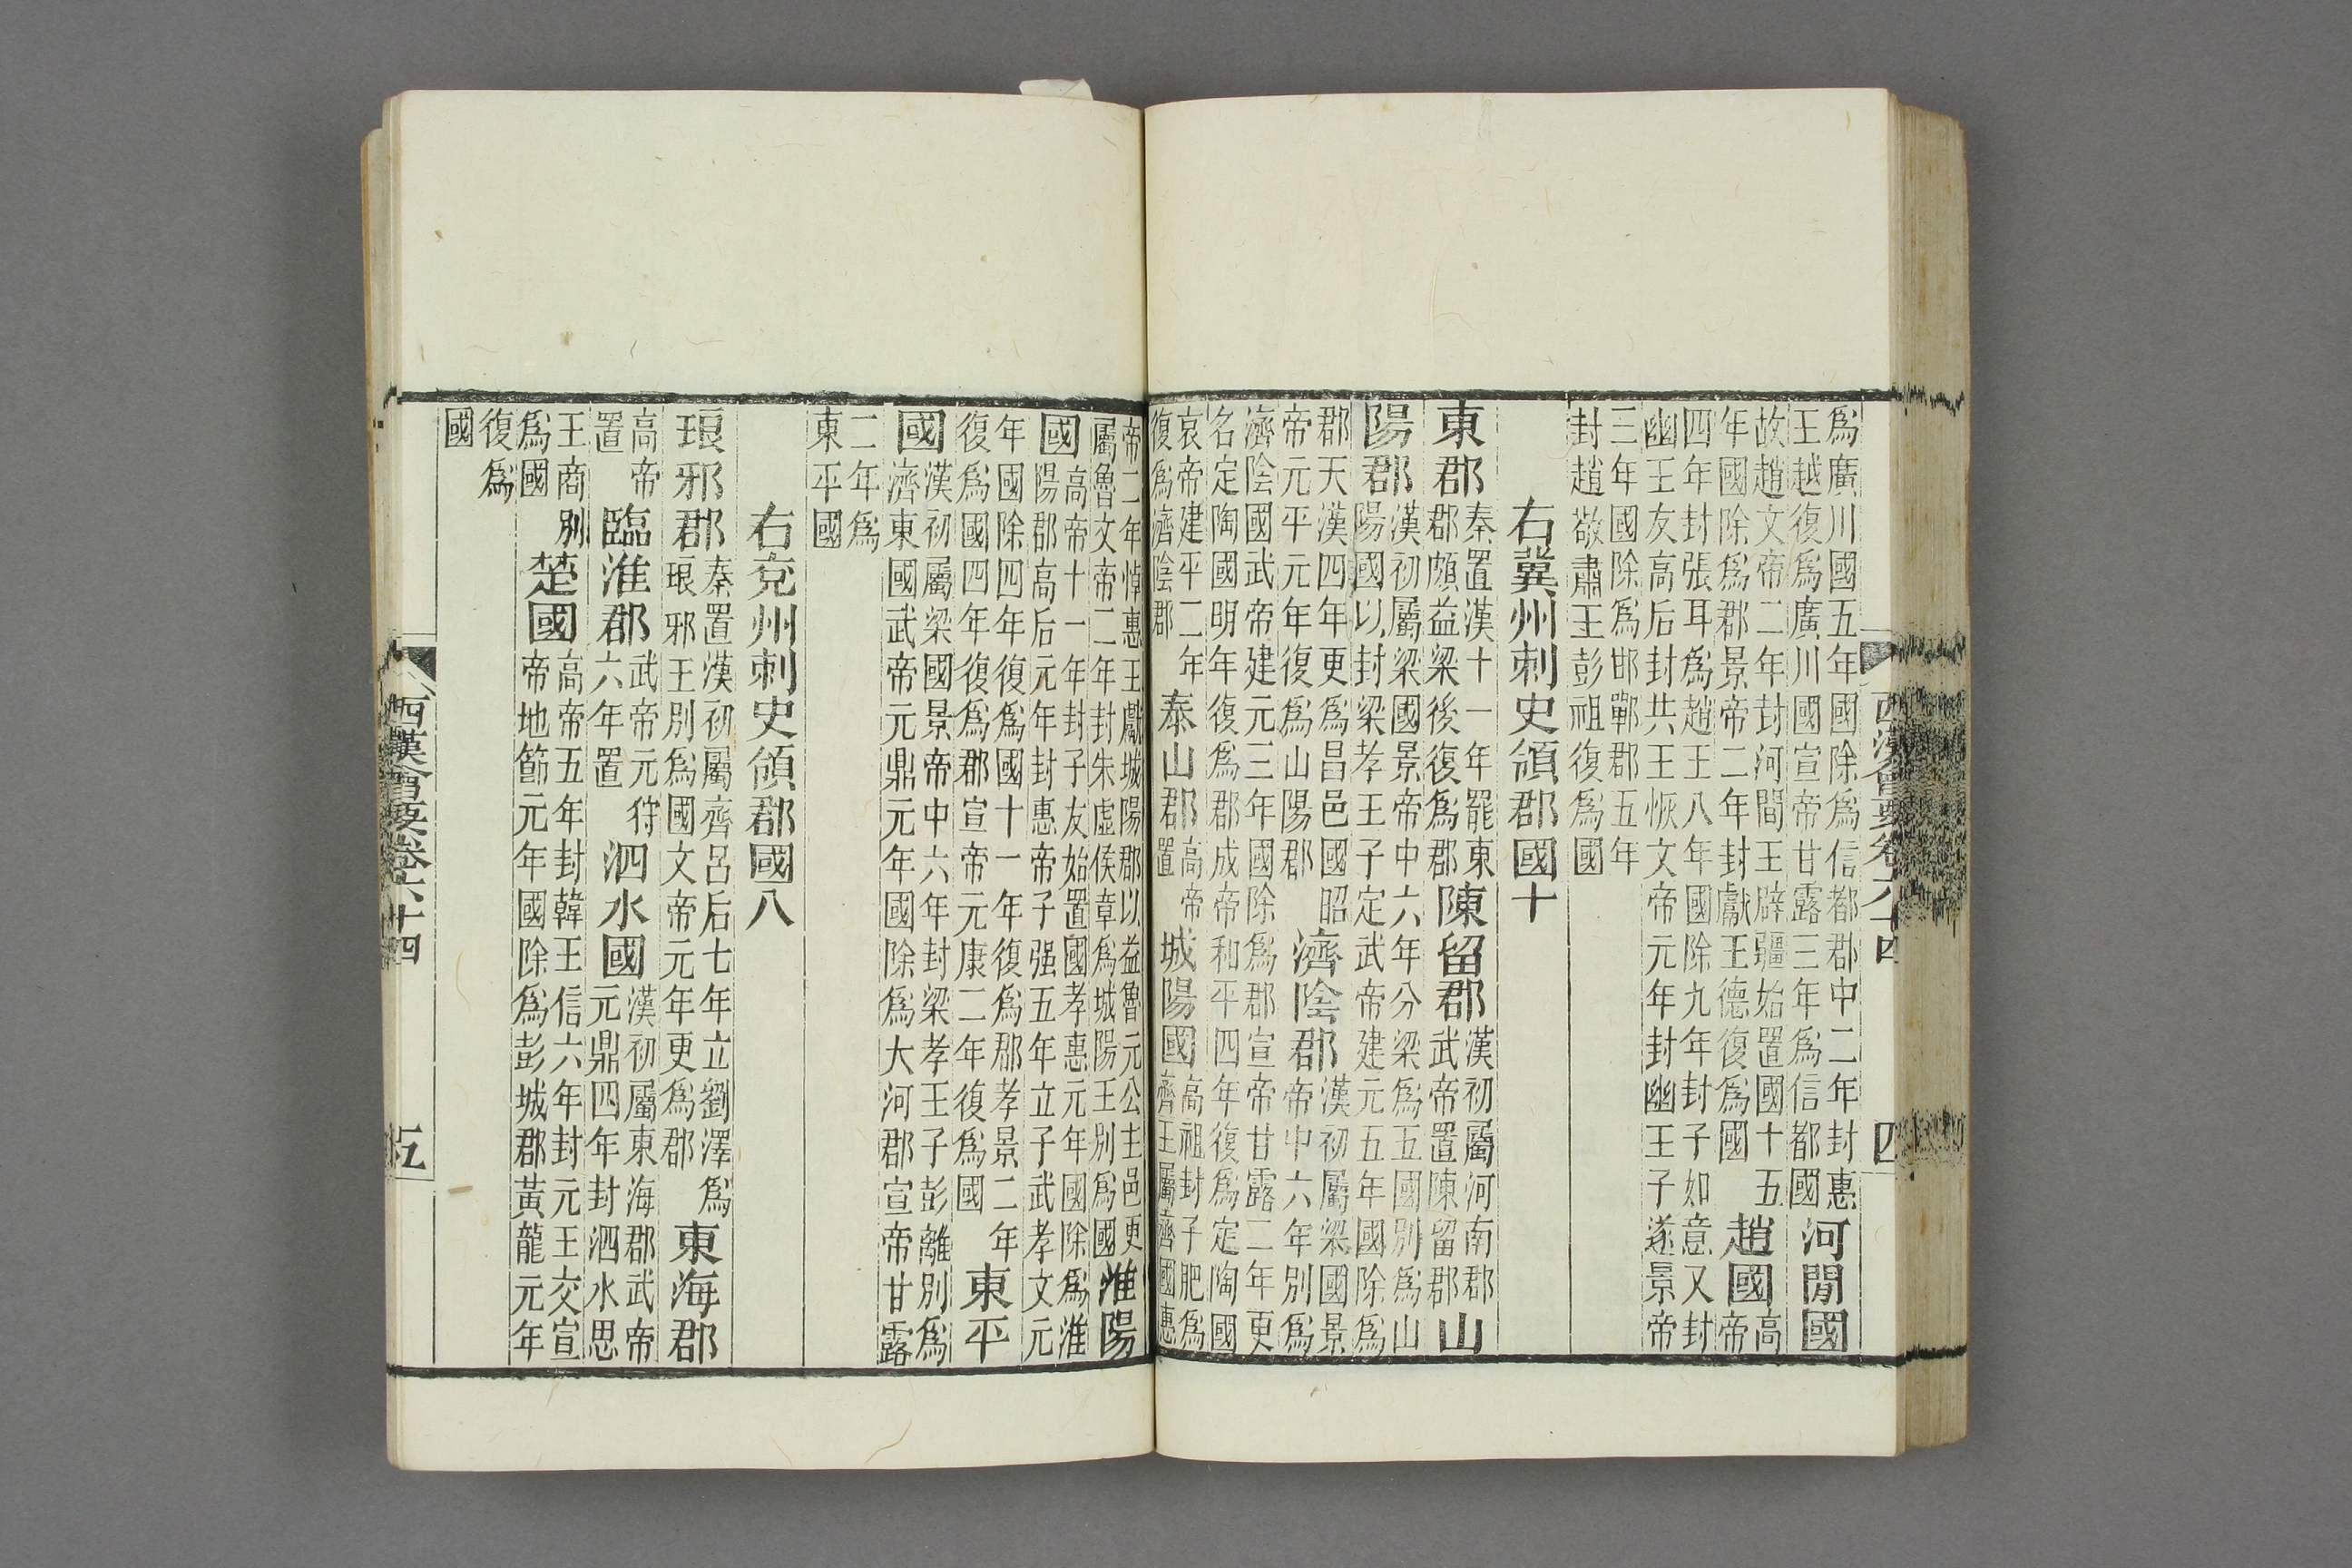 爲廣川國五年國除爲信都郡中二年封惠王越復爲廣川國宣帝甘露三年爲信都國河閒國
故趙文帝二年封河間王辟疆始置國十五年國除爲郡景帝二年封獻王德復爲國趙國高帝
四年封張耳爲趙王八年國除九年封子如意又封幽王友高后封共王恢文帝元年封幽王子遂景帝
三年國除爲邯鄲郡五年封趙敬肅王彭祖復爲國
右冀州刺史領郡國十
東郡秦置漢十一年罷東郡頗益梁後復爲郡陳留郡漢初屬河南郡武帝置陳留郡山
陽郡漢初屬梁國景帝中六年分梁爲五國別爲山陽國以封梁孝王子定武帝建元五年國除爲
郡天漢四年更爲昌邑國昭帝元平元年復爲山陽郡濟陰郡漢初屬梁國景帝中六年別爲
濟陰國武帝建元三年國除爲郡宣帝甘露二年更名定陶國明年復爲郡成帝和平四年復爲定陶國
哀帝建平二年復爲濟陰郡泰山郡高帝置城陽國高祖封子肥爲齊王屬齊國惠
西漢會要卷六十四
四
帝二年悼惠王獻城陽郡以益魯元公主邑更屬魯文帝二年封朱虛侯章爲城陽王別爲國淮陽
國高帝十一年封子友始置國孝惠元年國除爲淮陽郡高后元年封惠帝子强五年立子武孝文元
年國除四年復爲國十一年復爲郡孝景二年復爲國四年復爲郡宣帝元康二年復爲國東平
國漢初屬梁國景帝中六年封梁孝王子彭離別爲濟東國武帝元鼎元年國除爲大河郡宣帝甘露
二年爲東平國
右兖州刺史領郡國八
琅邪郡秦置漢初屬齊呂后七年立劉澤爲琅邪王別爲國文帝元年更爲郡東海郡
高帝置臨淮郡武帝元狩六年置泗水國漢初屬東海郡武帝元鼎四年封泗水思
王商別爲國楚國高帝五年封韓王信六年封元王交宣帝地節元年國除爲彭城郡黃龍元年
復爲國
西漢會要卷六十四
五